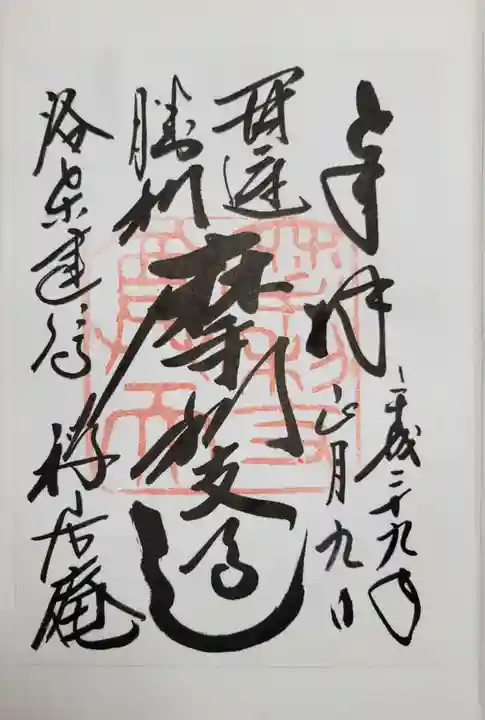 奉拝
平成二十九年
正月九日
開運
勝利
摩利支尊天
洛東建仁寺
禅居庵